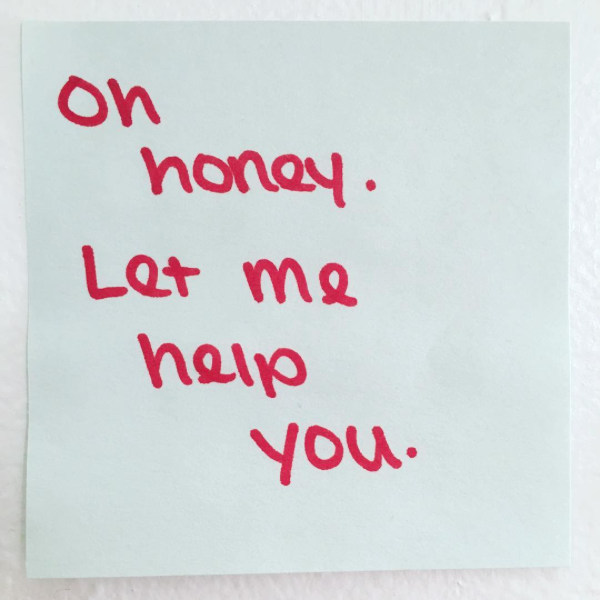 Oh
honey.
Let me
help
you.